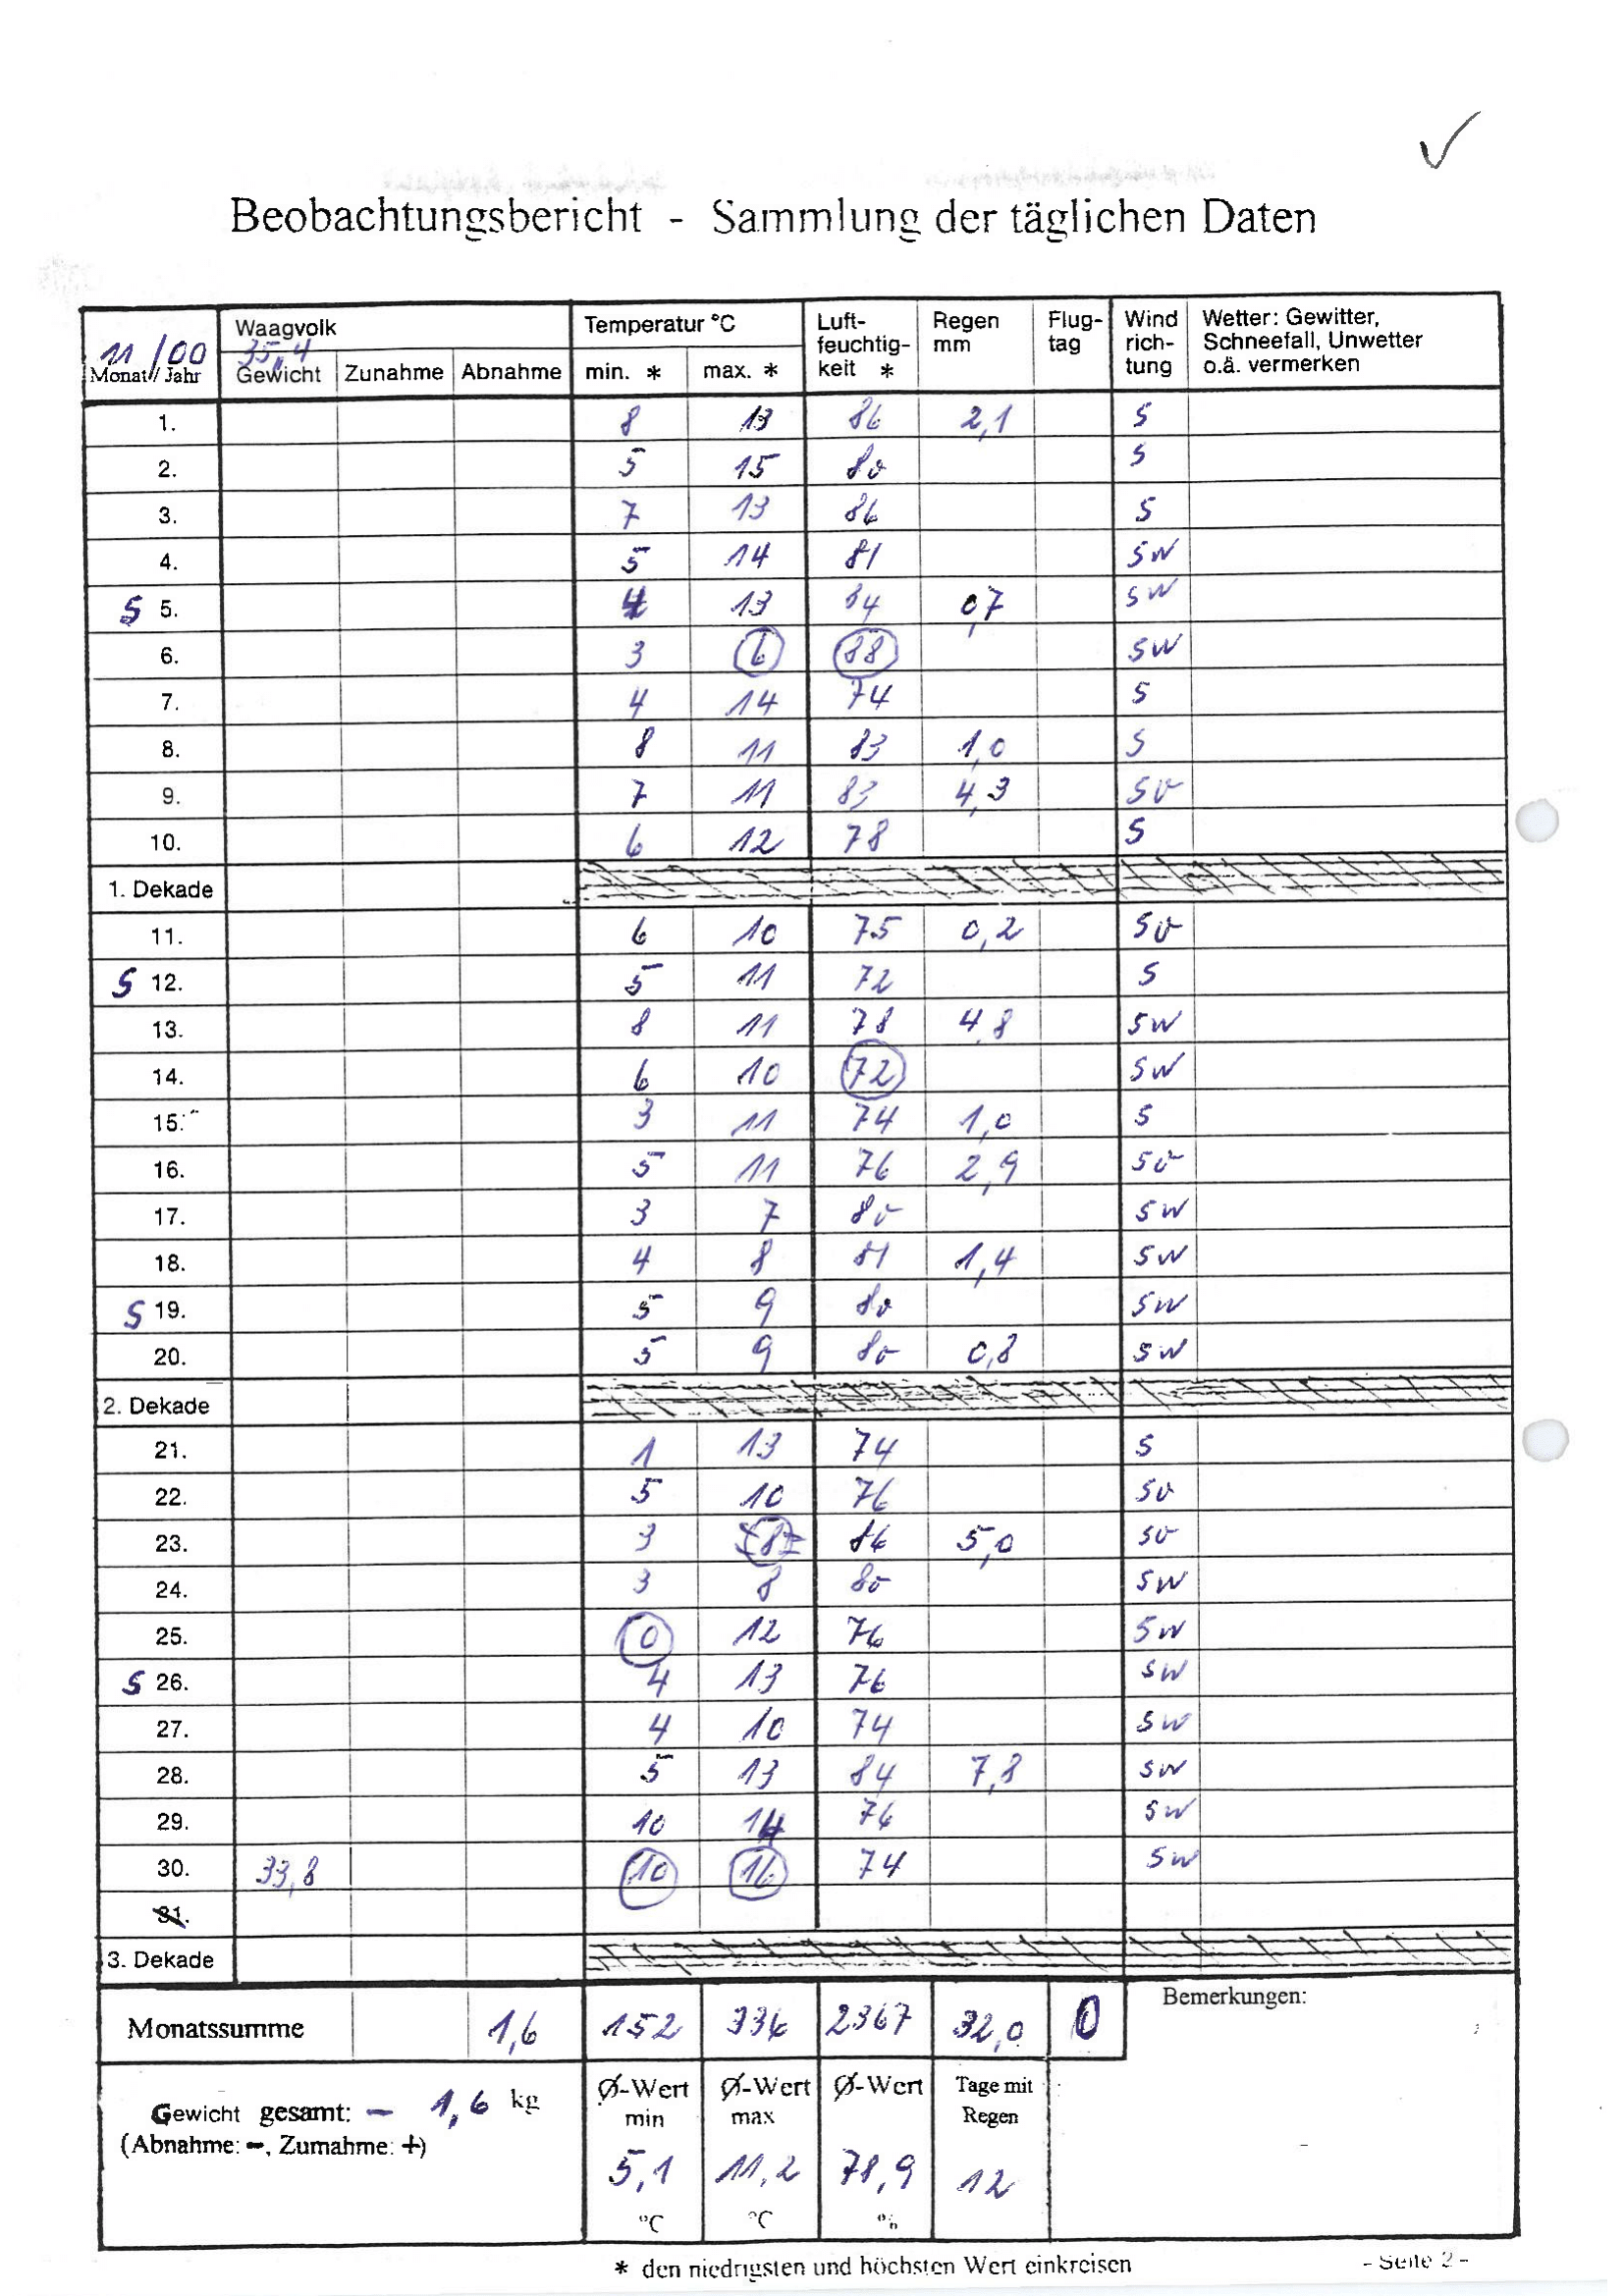 Beobachtungsbericht - Sammlung der täglichen Daten
11/00 Monat/ Jahr Waagvolk 35,4 Gewicht Zunahme Abnahme Temperatur °C min. * max. * Luft-feuchtig-keit * Regen mm Flug-tag Wind rich-tung Wetter: Gewitter, Schneefall, Unwetter o.ä. vermerken
1. 8 13 86 2,1 S
2. 5 15 80 S
3. 7 13 86 S
4. 5 14 81 SW
S 5. 4 13 84 0,7 SW
6. 3 6 88 SW
7. 4 14 74 S
8. 8 11 83 1,0 S
9. 7 11 83 4,3 SO
10. 6 12 78 S
1. Dekade
11. 6 10 75 0,2 SO
S 12. 5 11 72 S
13. 8 11 78 4,8 SW
14. 6 10 72 SW
15. 3 11 74 1,0 S
16. 5 11 76 2,9 SO
17. 3 7 80 SW
18. 4 8 81 1,4 SW
S 19. 5 9 80 SW
20. 5 9 80 0,8 SW
2. Dekade
21. 1 13 74 S
22. 5 10 76 SO
23. 3 86 5,0 SO
24. 3 8 80 SW
25. 0 12 76 SW
S 26. 4 13 76 SW
27. 4 10 74 SW
28. 5 13 84 7,8 SW
29. 10 14 76 SW
30. 33,8 10 16 74 SW
31.
3. Dekade
Monatssumme 1,6 152 336 2367 32,0 0 Bemerkungen:
Gewicht gesamt: - 1,6 kg
(Abnahme: -, Zumahme: +)
Ø-Wert min Ø-Wert max Ø-Wert Tage mit Regen
5,1 11,2 78,9 12
°C °C %
* den niedrigsten und höchsten Wert einkreisen
- Seite 2 -